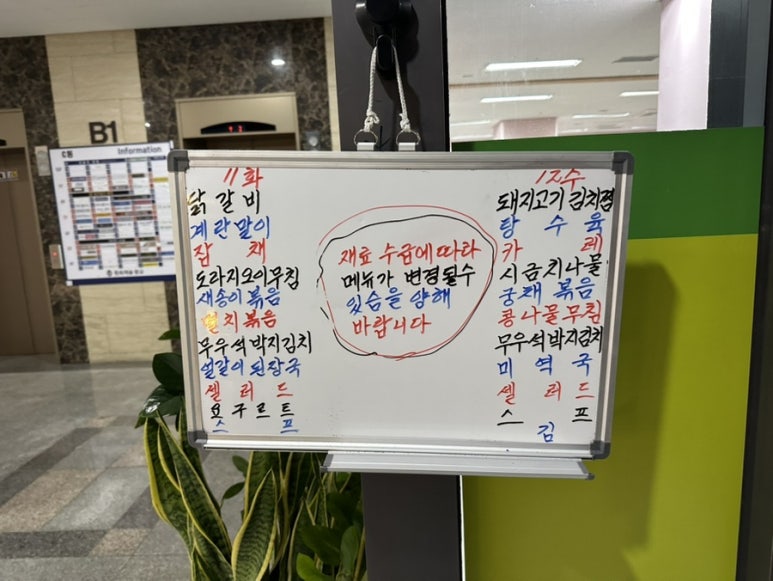 B1
Information
11화
닭갈비
계란말이
잡채
도라지오이무침
새송이볶음
멸치볶음
무우석박지김치
얼갈이된장국
셀러드
요구르트
스프
재료 수급에 따라
메뉴가 변경될수
있슴을 양해
바랍니다
12수
돼지고기 김치찜
탕수육
카레
시금치나물
궁채볶음
콩나물무침
무우석박지김치
미역국
셀러드
스프
김